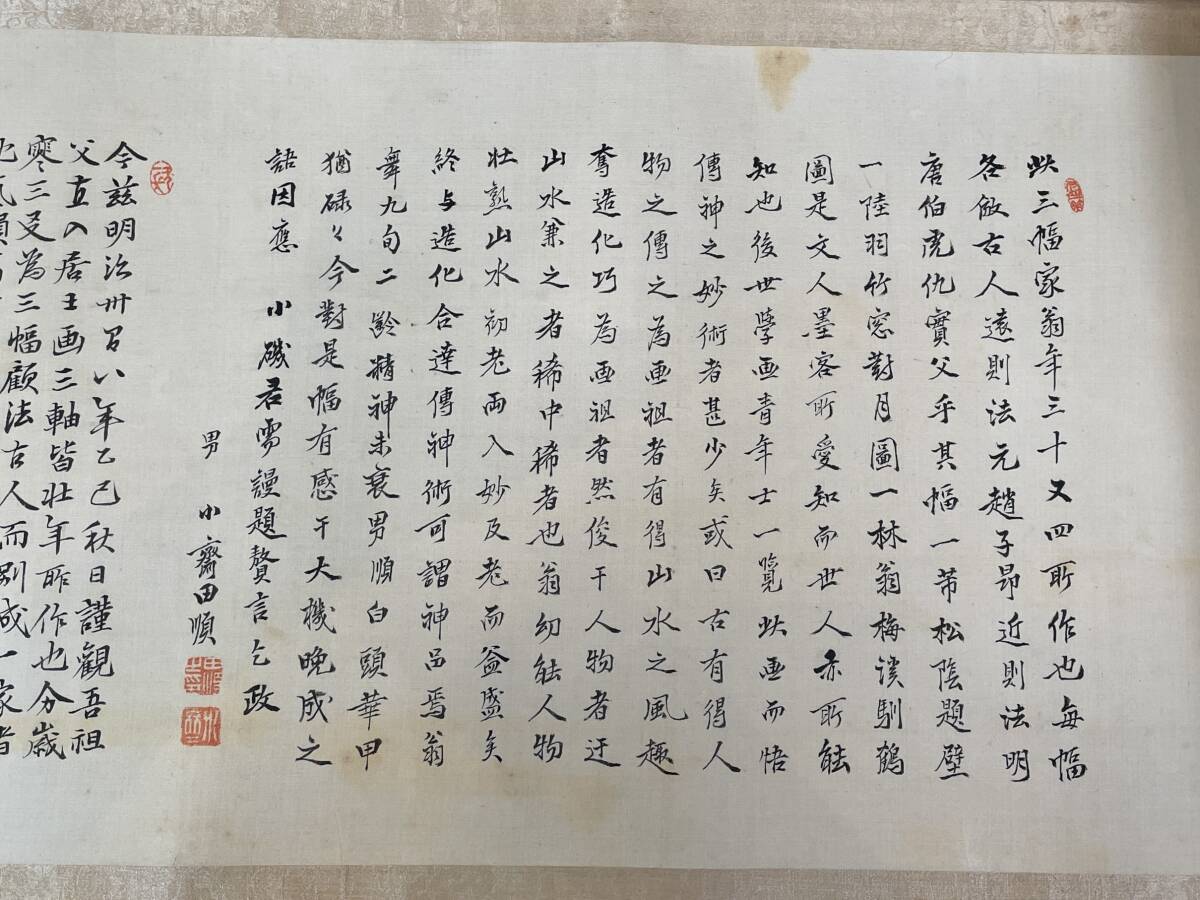 此三幅家翁年三十又四所作也每幅
各倣古人遠則法元趙子昂近則法明
唐伯虎仇實父乎其幅一芾松陰題壁
一陸羽竹窓對月圖一林翁梅溪馴鶴
圖是文人墨客所愛知而世人亦所能
知也後世學画青年士一覽此画而悟
傳神之妙術者甚少矣或曰古有得人
物之傳之為画祖者有得山水之風趣
奪造化巧為画祖者然俊于人物者迂
山水兼之者稀中稀者也翁幼能人物
壮熟山水初老両入妙及老而益盛矣
終与造化合達傳神術可謂神品焉翁
舞九旬二齡精神未衰男順白頭華甲
猶碌々今對是幅有感于大機晚成之
語因應　小磯君需謾題贅言乞政
男　小齋田順
今茲明治卅八年乙巳秋日謹觀吾祖
父直入居士画三軸皆壮年所作也分歳
寒三友為三幅顧法古人而別成一家者